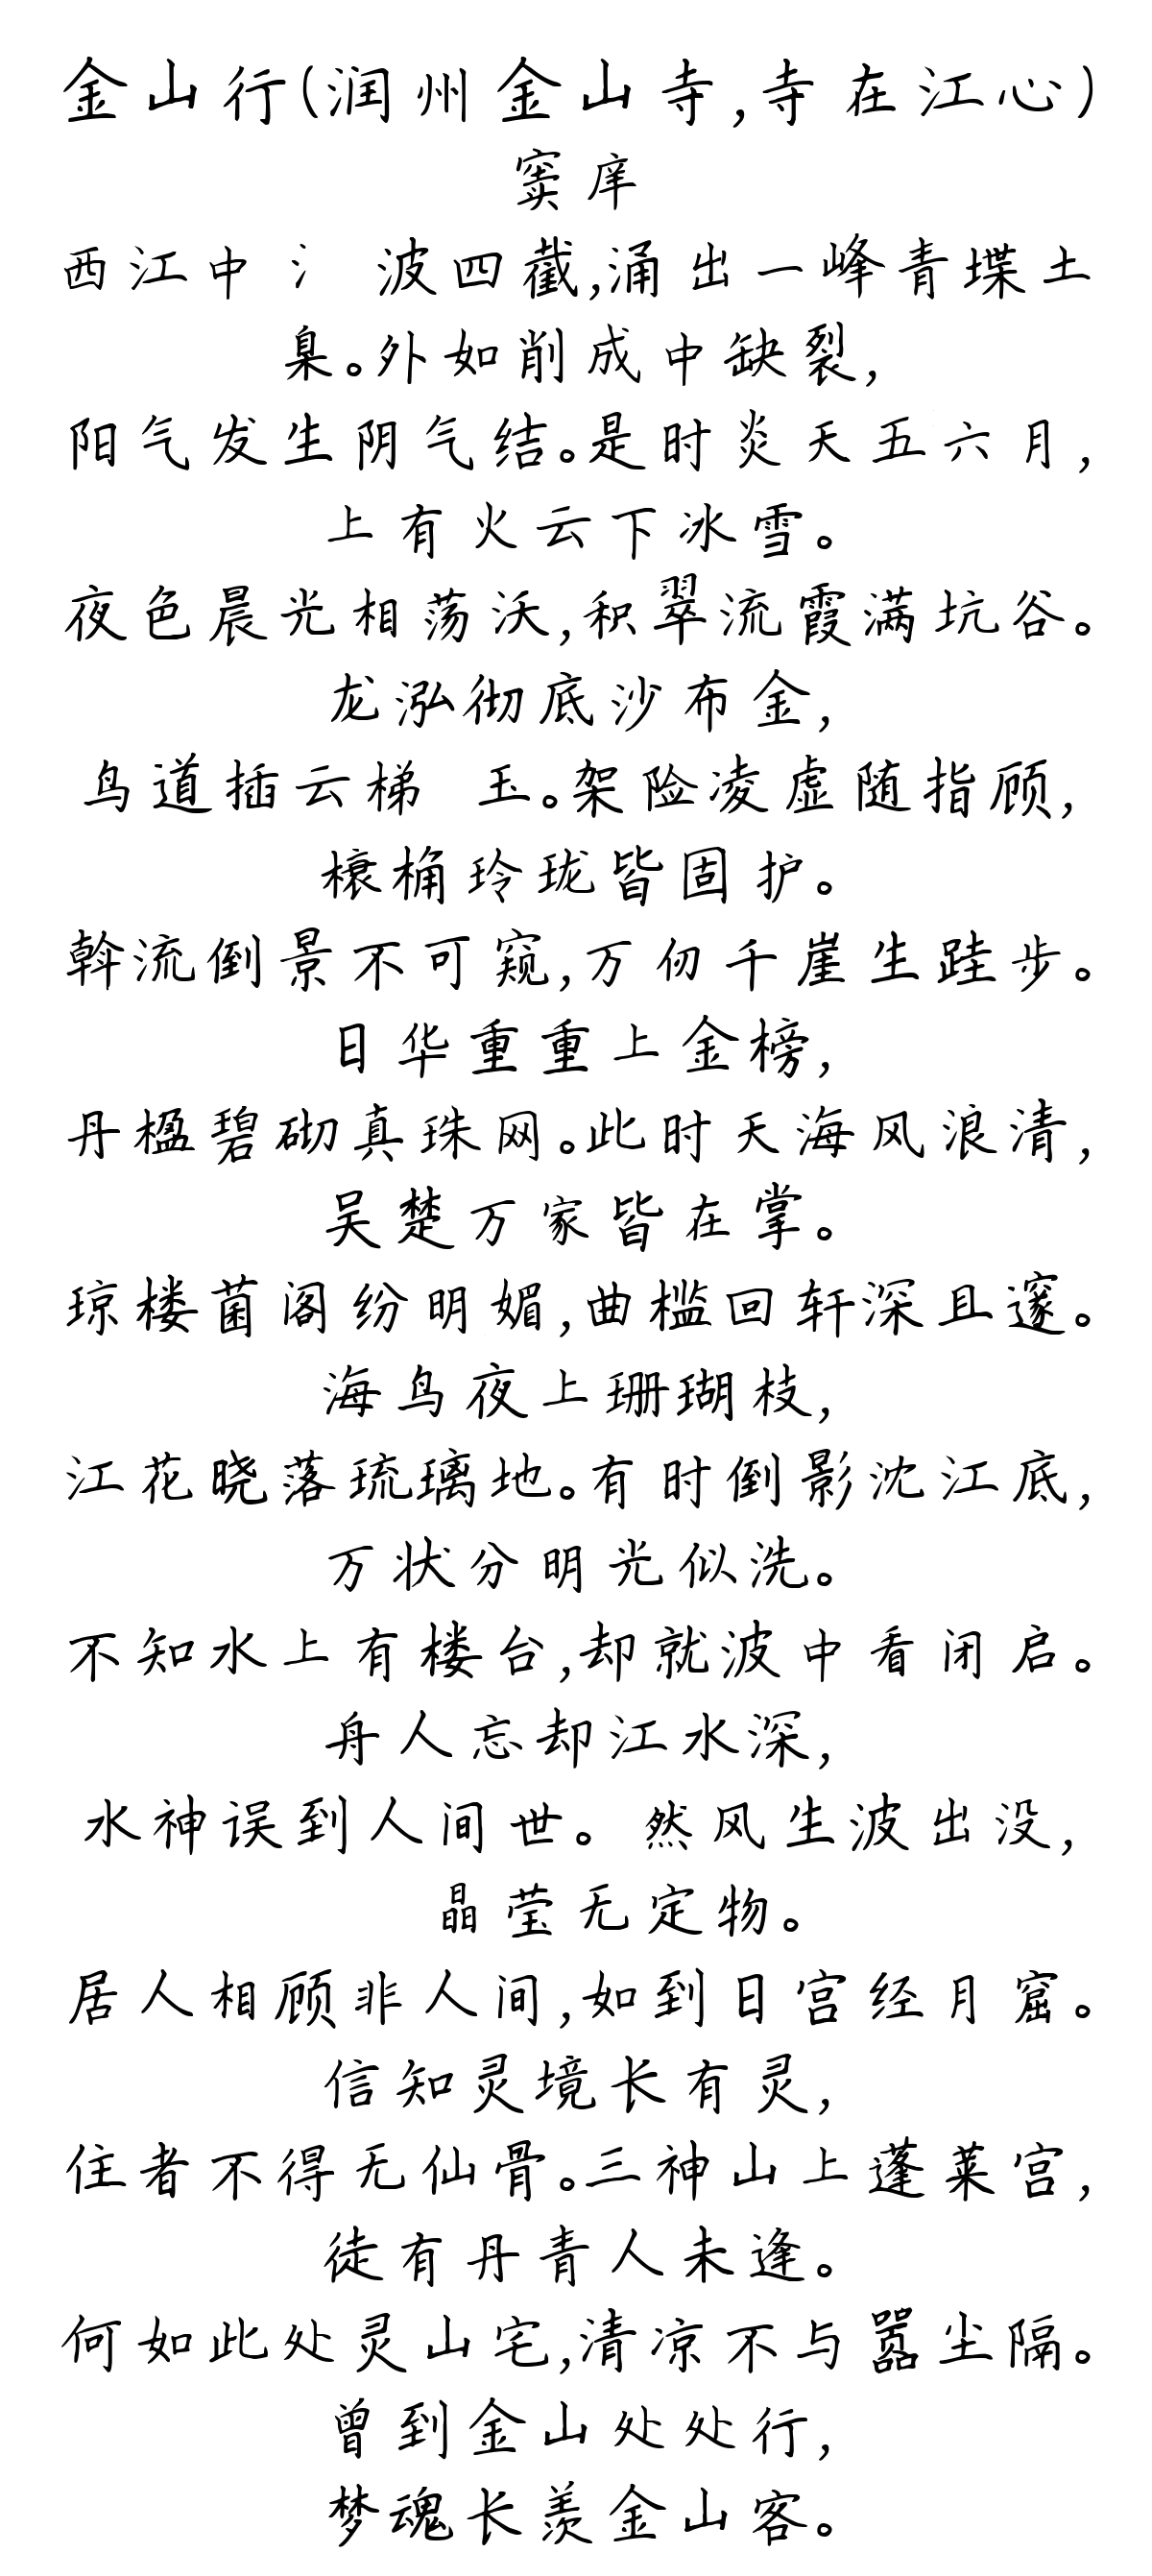 金山行(润州金山寺,寺在江心)
窦庠
西江中氵 波四截,涌出一峰青堞土
臬。外如削成中缺裂,
阳气发生阴气结。是时炎天五六月,
上有火云下冰雪。
夜色晨光相荡沃,积翠流霞满坑谷。
龙泓彻底沙布金,
鸟道插云梯 玉。架险凌虚随指顾,
榱桷玲珑皆固护。
斡流倒景不可窥,万仞千崖生跬步。
日华重重上金榜,
丹楹碧砌真珠网。此时天海风浪清,
吴楚万家皆在掌。
琼楼菌阁纷明媚,曲槛回轩深且邃。
海鸟夜上珊瑚枝,
江花晓落琉璃地。有时倒影沈江底,
万状分明光似洗。
不知水上有楼台,却就波中看闭启。
舟人忘却江水深,
水神误到人间世。 然风生波出没,
 晶莹无定物。
居人相顾非人间,如到日宫经月窟。
信知灵境长有灵,
住者不得无仙骨。三神山上蓬莱宫,
徒有丹青人未逢。
何如此处灵山宅,清凉不与嚣尘隔。
曾到金山处处行,
梦魂长羡金山客。